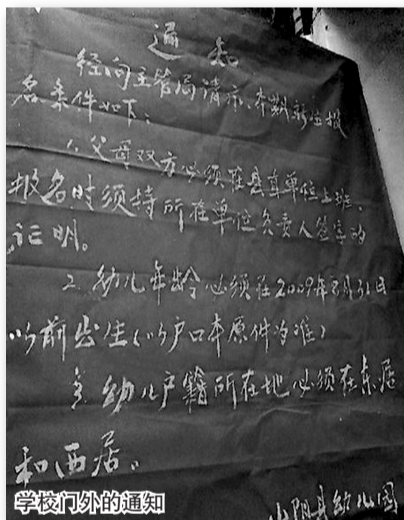 通知
经向主管局请示、本期新生报
名条件如下:
1、父母双方必须在县直单位上班、
报名时须持所在单位负责人签字的
证明。
2、幼儿年龄必须在2009年8月31日
以前出生(以户口本原件为准)
3、幼儿户籍所在地必须在东居
和西居。
山阴县幼儿园
学校门外的通知